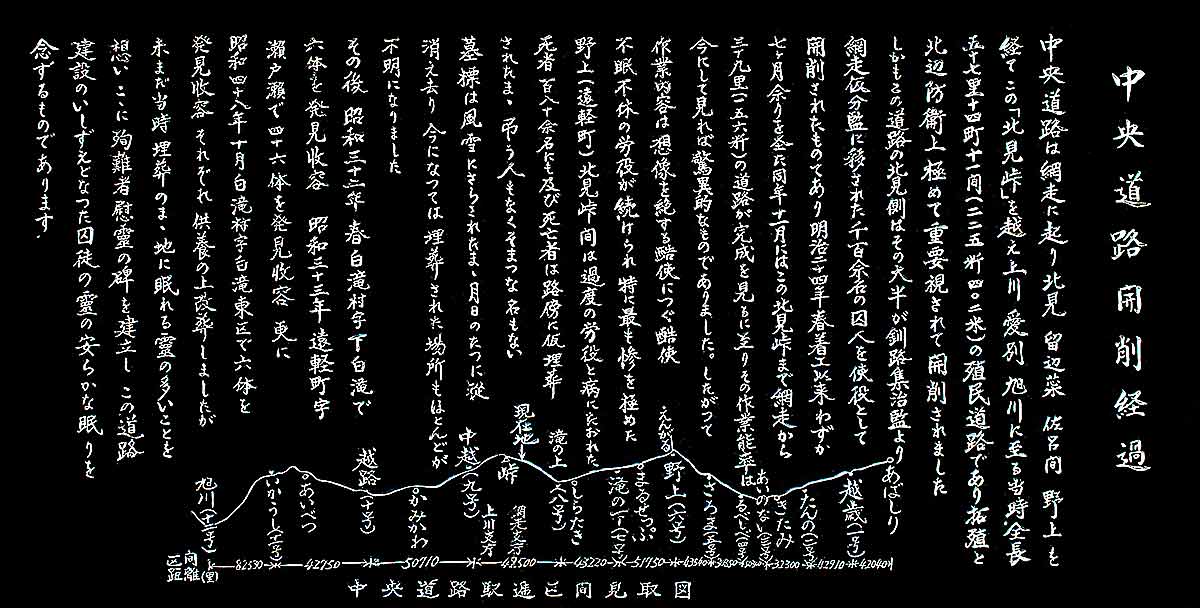 中央道路開削経過
中央道路は網走に起り北見 留辺蘂 佐呂間 野上を
経てこの「北見峠」を越え上川 愛別 旭川に至る当時全長
五十七里十四町十一間(二二五粁四〇二米)の殖民道路であり拓殖と
北辺防衛上極めて重要視されて開削されました
しかもこの道路の北見側はその大半が釧路集治監より
網走仮分監に移された千百余名の囚人を使役として
開削されたものであり明治二十四年春着工以来わずか
七ヶ月余りを至た同年十一月にはこの北見峠まで網走から
三十九里(一五六粁)の道路が完成を見るに至りその作業能率は
今にして見れば驚異的なものでありました。したがって
作業内容は想像を絶する酷使につぐ酷使
不眠不休の労役が続けられ特に最も惨を極めた
野上(遠軽町)北見峠間は過度の労役と病にたおれた
死者百八十余名にも及び死亡者は路傍に仮埋葬
されたまゝ弔う人もなくそまつな名もない
墓標は風雪にさらされたまゝ月日のたつに従
消え去り今になっては埋葬された場所もほとんどが
不明になりました
その後 昭和三十二年春白滝村字下白滝で
六体を発見收容 昭和三十三年 遠軽町字
瀬戸瀬で四十六体を発見收容 更に
昭和四十八年十月白滝村字白滝東区で六体を
発見收容 それぞれ供養の上改葬しましたが
未まだ当時埋葬のまゝ地に眠れる霊の多いことを
想いここに殉難者慰霊の碑を建立し この道路
建設のいしずえとなった囚徒の霊の安らかな眠りを
念ずるものであります.
あばしり
越歳(一号)
たんの(二号)
きたみ
あいのない(三号)
るべしべ(四号)
さろま(五号)
えんがる
野上(六号)
まるせっぷ
滝の下(七号)
しらたき
滝の上(八号)
現在地
峠
網走支庁
上川支庁
中越(九号)
かみかわ
越路(十号)
あいべつ
いかうし(十一号)
旭川(十二号)
区間距離(里)
82530 42750 50710 49500 43220 51750 43540 32300 42910 42040
中央道路駅逓区間見取図